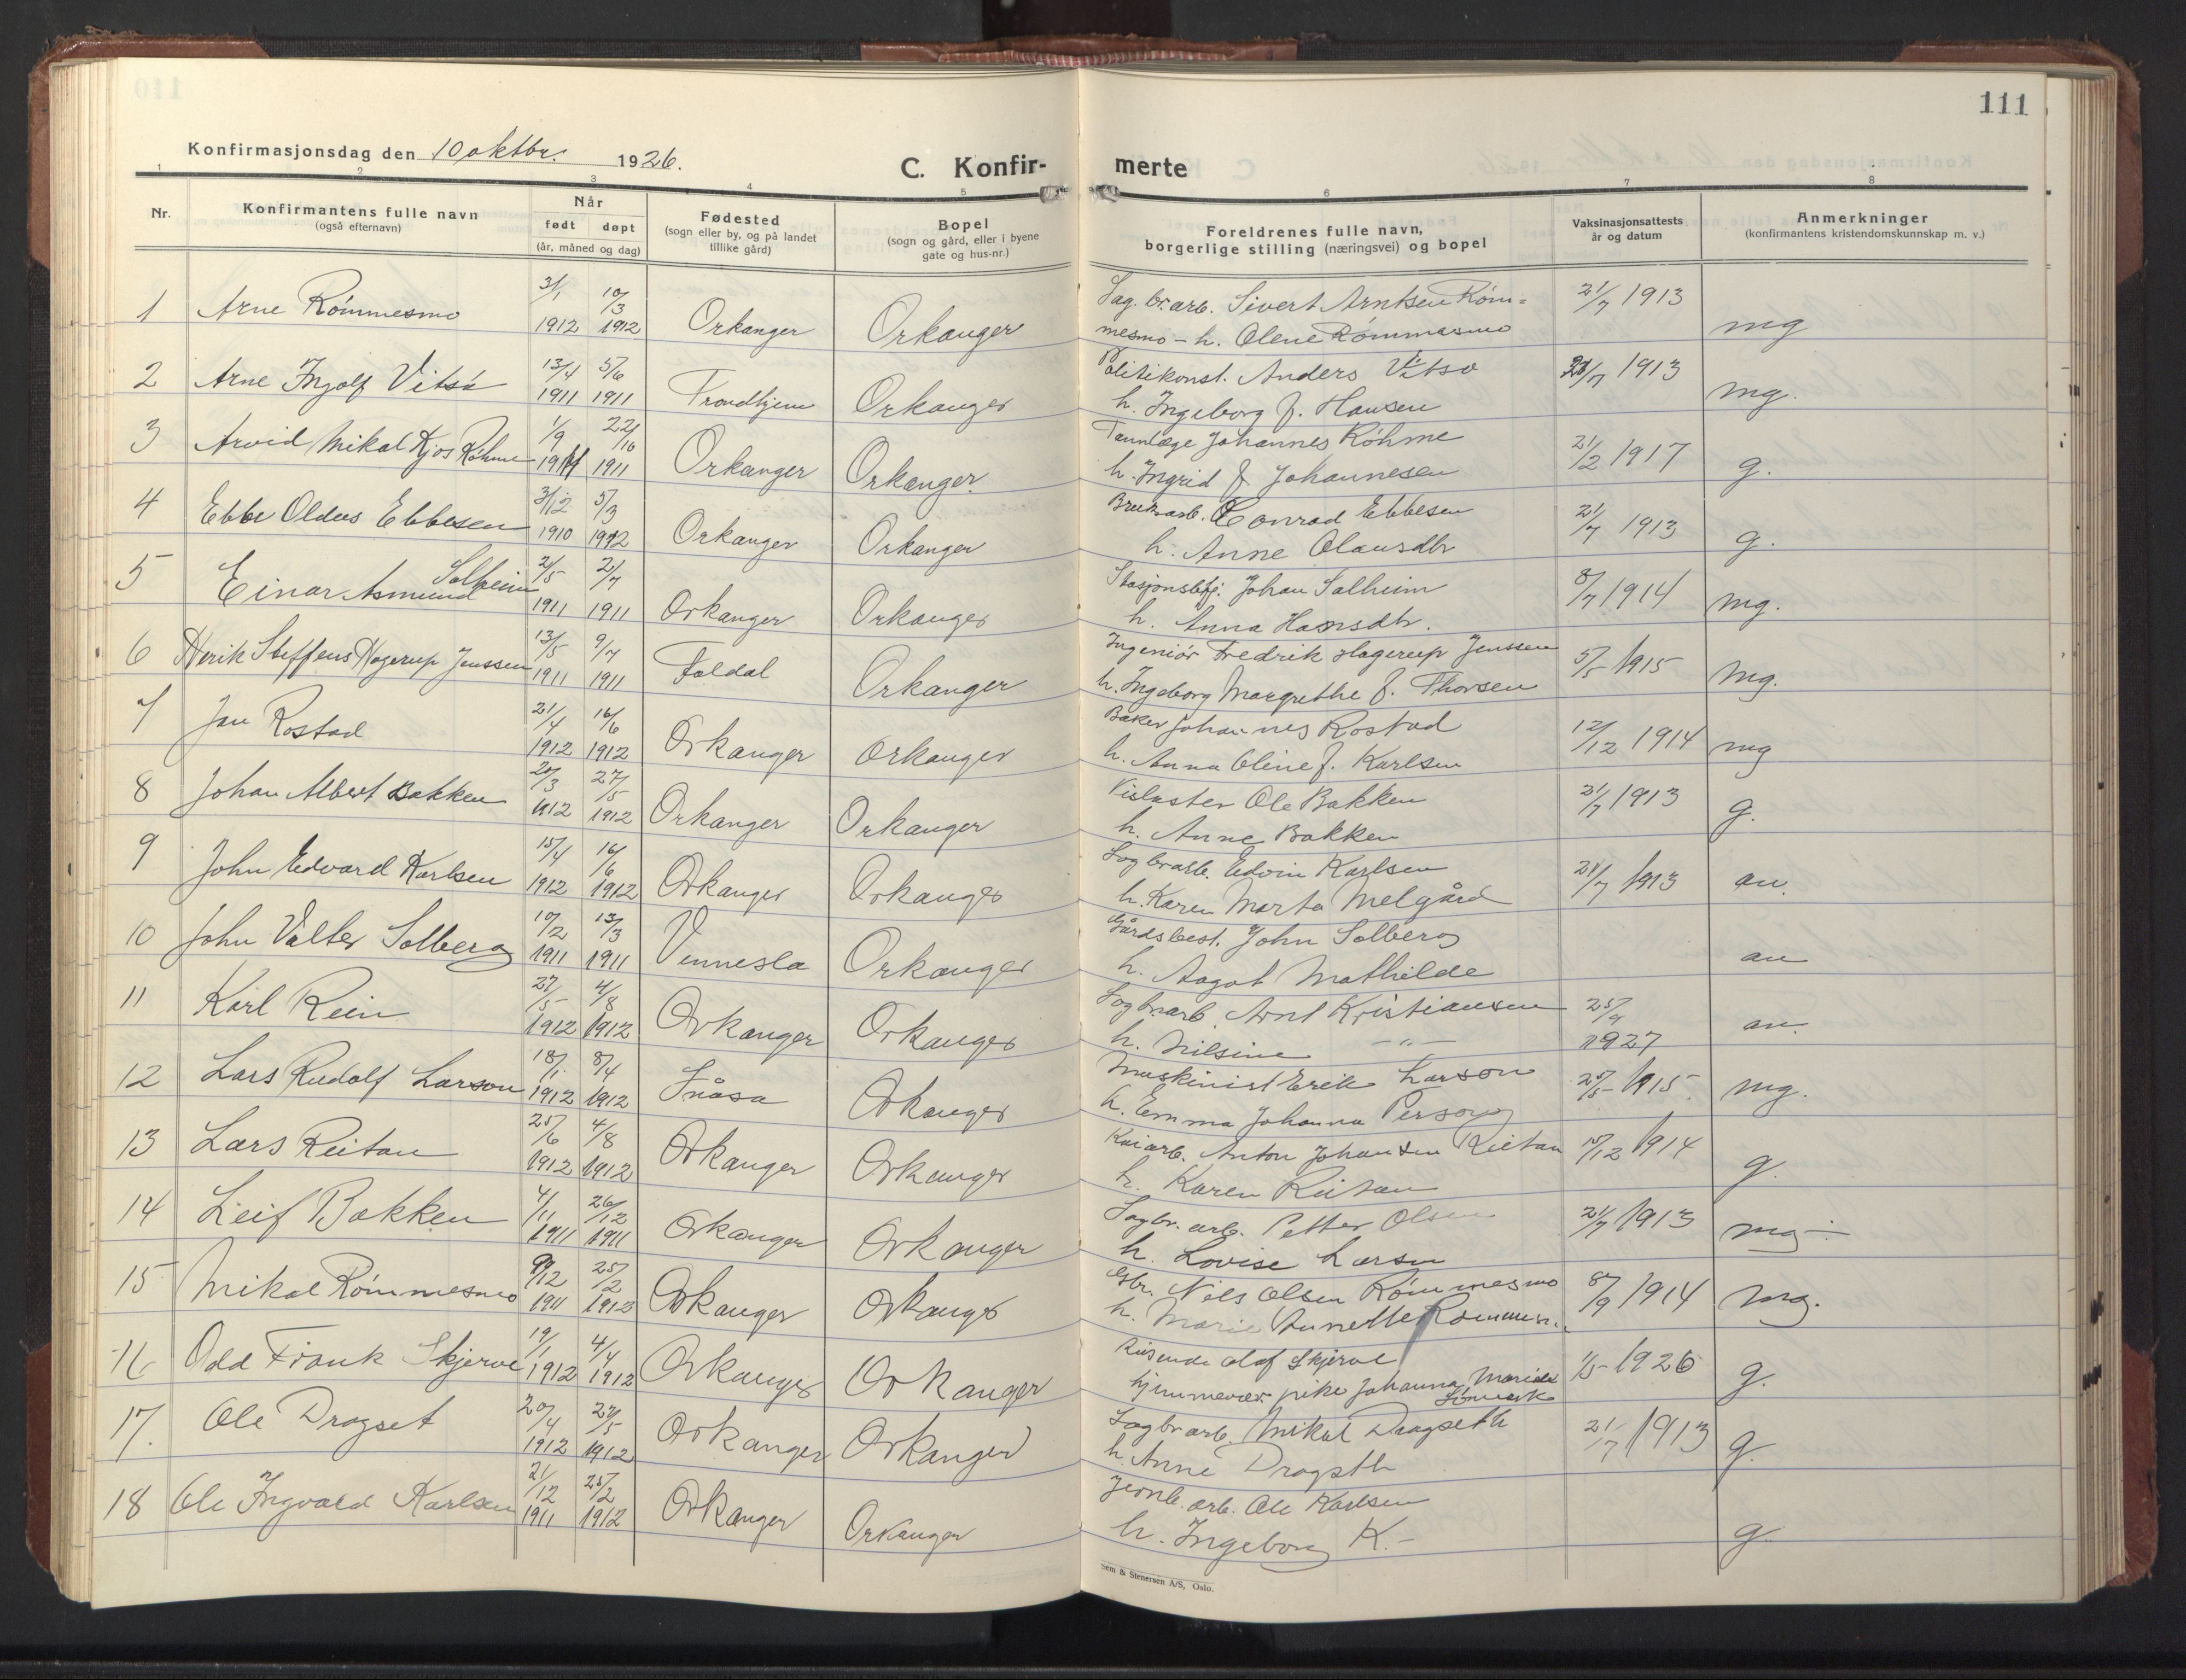 111
Konfirmasjonsdag den 10 oktbr. 1926.
C. Konfir-merte
1 2 3 4 5 6 7 8
Nr.
Konfirmantens fulle navn
(også efternavn)
Når
født døpt
(år, måned og dag)
Fødested
(sogn eller by, og på landet
tillike gård)
Bopel
(sogn og gård, eller i byene
gate og hus-nr.)
Foreldrenes fulle navn,
borgerlige stilling (næringsvei) og bopel
Vaksinasjonsattests
år og datum
Anmerkninger
(konfirmantens kristendomskunnskap m. v.)
1 Arne Rømmesmo 3/1 1912 10/3 1912 Orkanger Orkanger Sag.br.arb. Sivert Arntsen Røm=
mesmo - h. Olene Rømmesmo 21/7 1913 mg
2 Arne Ingolf Vitsø 13/4 1911 5/6 1911 Trondhjem Orkanger Politikonst. Anders Vitsø
h. Ingeborg f. Hansen 21/7 1913 mg.
3 Arvid Mikal Kjos Røhme 1/9 1911 22/10 1911 Orkanger Orkanger. Tannlæge Johannes Røhme
h. Ingrid f. Johannesen 21/2 1917 g.
4 Ebbe Oldus Ebbesen 31/12 1910 5/3 1912 Orkanger Orkanger Bruksarb. Conrad Ebbesen
h. Anne Olausdtr 21/7 1913 g.
5 Einar Asmund Solheim 2/5 1911 2/7 1911 Orkanger Orkanger Stasjonsbetj. Johan Solheim
h. Anna Hansdtr. 8/7 1914 mg.
6 Henrik Steffens Hagerup Jenssen 13/5 1911 9/7 1911 Foldal Orkanger Ingeniør Fredrik Hagerup Jenssen
h. Ingeborg Margrethe f. Thorsen 5/5 1915 mg.
7 Jan Rostad 21/4 1912 16/6 1912 Orkanger Orkanger Baker Johannes Rostad
h. Anna Oline f. Karlsen 12/12 1914 mg
8 Johan Albert Bakken 20/3 1912 27/5 1912 Orkanger Orkanger Ole Bakken
h. Anne Bakken 21/7 1913 g.
9 John Edvard Karlsen 15/4 1912 16/6 1912 Orkanger Orkanger Sagbr.arb. Edvin Karlsen
h. Karen Marta Melgård 21/7 1913 au.
10 John Valter Solberg 10/2 1911 13/3 1911 Vennesla Orkanger Gårdsbest. John Solberg
h. Aagot Mathilde au
11 Karl Rein 27/5 1912 4/8 1912 Orkanger Orkanger Sagbr.arb. Arnt Kristiansen
h. Nilsine -"- 25/9 1927 au.
12 Lars Rudolf Larson 18/1 1912 8/4 1912 Snåsa Orkanger Maskinist Erik Larson
h. Emma Johanna Person 25/5 1915. mg.
13 Lars Reitan 25/6 1912 4/8 1912 Orkanger Orkanger Kaiarb. Anton Johansen Reitan
h. Karen Reitan 15/12 1914 g.
14 Leif Bakken 4/11 1911 26/12 1911 Orkanger Orkanger Sagbr. arb. Petter Olsen
h. Lovise Larsen 21/7 1913 mg ÷
15 Mikal Rømmesmo 9/12 1911 25/2 1912 Orkanger Orkanger Gbr. Nils Olsen Rømmesmo
h. Marie Annette Rømmesm. 8/9 1914 mg.
16 Odd Frank Skjerve 19/1 1912 4/4 1912 Orkanger Orkanger Reisende Olaf Skjerve
hjemmevær. pike Johanna Marida 1/5 1926 g.
17. Ole Dragset 20/4 1912 27/5 1912 Orkanger Orkanger Sagbr.arb. Mikal Dragseth
h. Anne Dragseth 21/7 1913 g.
18 Ole Ingvald Karlsen 21/12 1911 25/2 1912 Orkanger Orkanger Jernb. arb. Ole Karlsen
h. Ingeborg K.- g.
Sem & Stenersen A/S, Oslo.